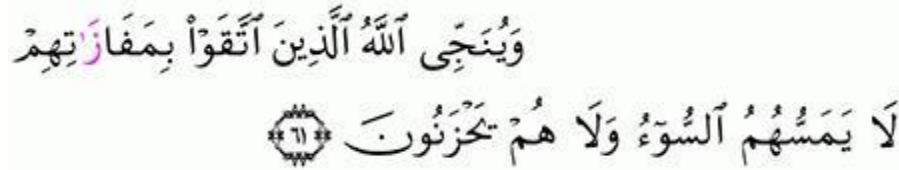 وَيُنَجِّى ٱللَّهُ ٱلَّذِينَ ٱتَّقَوْا۟ بِمَفَازَٰتِهِمْ
لَا يَمَسُّهُمُ ٱلسُّوٓءُ وَلَا هُمْ يَحْزَنُونَ ٦١